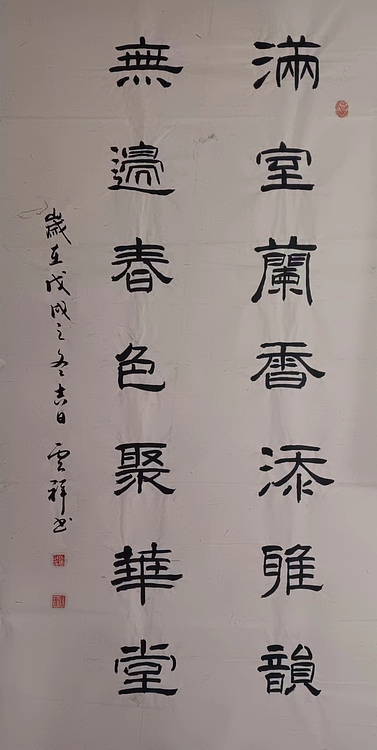 滿室蘭香添雅韻
無邊春色聚華堂
歲在戊戌之冬吉日 雲祥书